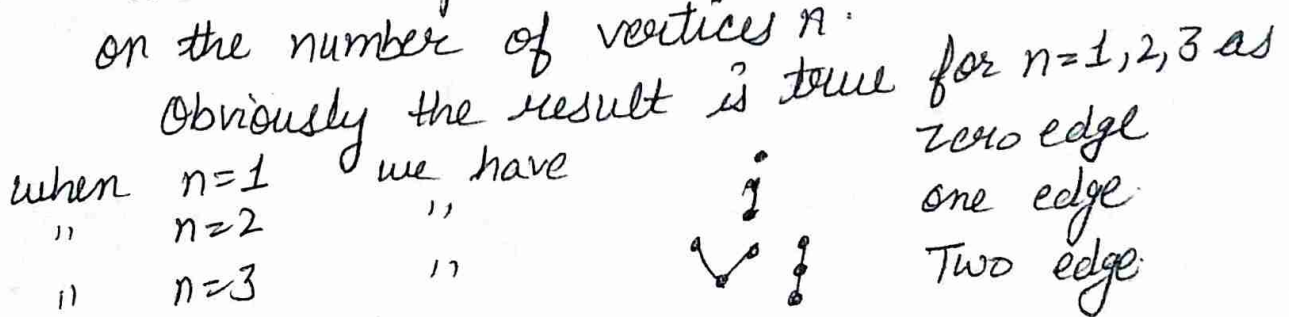 on the number of vertices n.
Obviously the result is true for n=1,2,3 as
when n=1 we have zero edge
" n=2 " one edge
" n=3 " Two edge